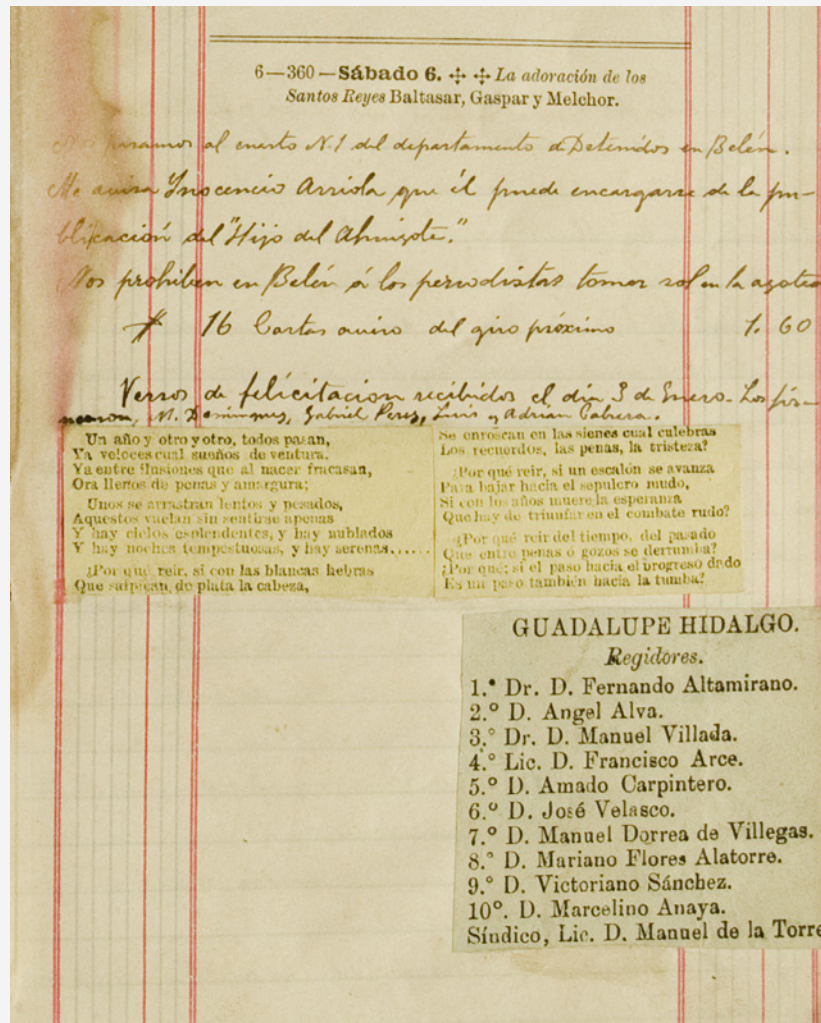 6—360—Sábado 6. ✢ ✢ La adoración de los
Santos Reyes Baltasar, Gaspar y Melchor.
Nos pasamos al cuarto N. 1 del departamento de Detenidos en Belén.
Me avisa Inocencio Arriola que él puede encargarse de la pu-
blicación del "Hijo del Ahuizote."
Nos prohiben en Belén á los periodistas tomar sol en la azotea
16 Cartas aviso del giro próximo 1. 60
Versos de felicitacion recibidos el dia 3 de Enero. Los fir-
maron, M. Dominguez, Gabriel Perez, Luis y Adrian Cabrera.
Un año y otro y otro, todos pasan,
Ya veloces cual sueños de ventura.
Ya entre ilusiones que al nacer fracasan,
Ora llenos de penas y amargura;
Unos se arrastran lentos y pesados,
Aquestos vuelan sin sentirse apenas
Y hay cielos esplendentes, y hay nublados
Y hay noches tempestuosas, y hay serenas......
¿Por qué reir, si con las blancas hebras
Que salpican de plata la cabeza,
Se enroscan en las sienes cual culebras
Los recuerdos, las penas, la tristeza?
¿Por qué reir, si un escalón se avanza
Para bajar hacia el sepulcro mudo,
Si con los años muere la esperanza
Que hay de triunfar en el combate rudo?
¿Por qué reir del tiempo, del pasado
Que entre penas ó gozos se derrumba?
¿Por qué; si el paso hacia el progreso dado
Es un paso también hacia la tumba?
GUADALUPE HIDALGO.
Regidores.
1.° Dr. D. Fernando Altamirano.
2.° D. Angel Alva.
3.° Dr. D. Manuel Villada.
4.° Lic. D. Francisco Arce.
5.° D. Amado Carpintero.
6.° D. José Velasco.
7.° D. Manuel Dorrea de Villegas.
8.° D. Mariano Flores Alatorre.
9.° D. Victoriano Sánchez.
10°. D. Marcelino Anaya.
Síndico, Lic. D. Manuel de la Torre